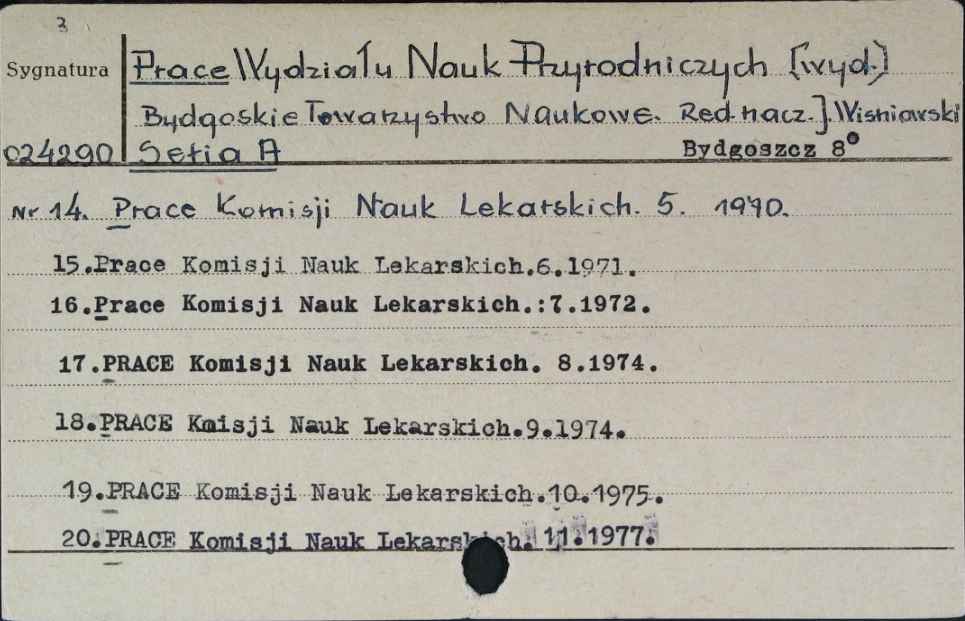 3
Sygnatura Prace Wydziału Nauk Przyrodniczych [wyd.]
Bydgoskie Towarzystwo Naukowe. Red. nacz. J. Wiśniowski
024290 Seria A Bydgoszcz 8°
Nr 14. Prace Komisji Nauk Lekarskich. 5. 1970.
15.Prace Komisji Nauk Lekarskich.6.1971.
16.Prace Komisji Nauk Lekarskich.:7.1972.
17.PRACE Komisji Nauk Lekarskich. 8.1974.
18.PRACE Kmisji Nauk Lekarskich.9.1974.
19.PRACE Komisji Nauk Lekarskich.10.1975.
20.PRACE Komisji Nauk Lekarskich. 11.1977.